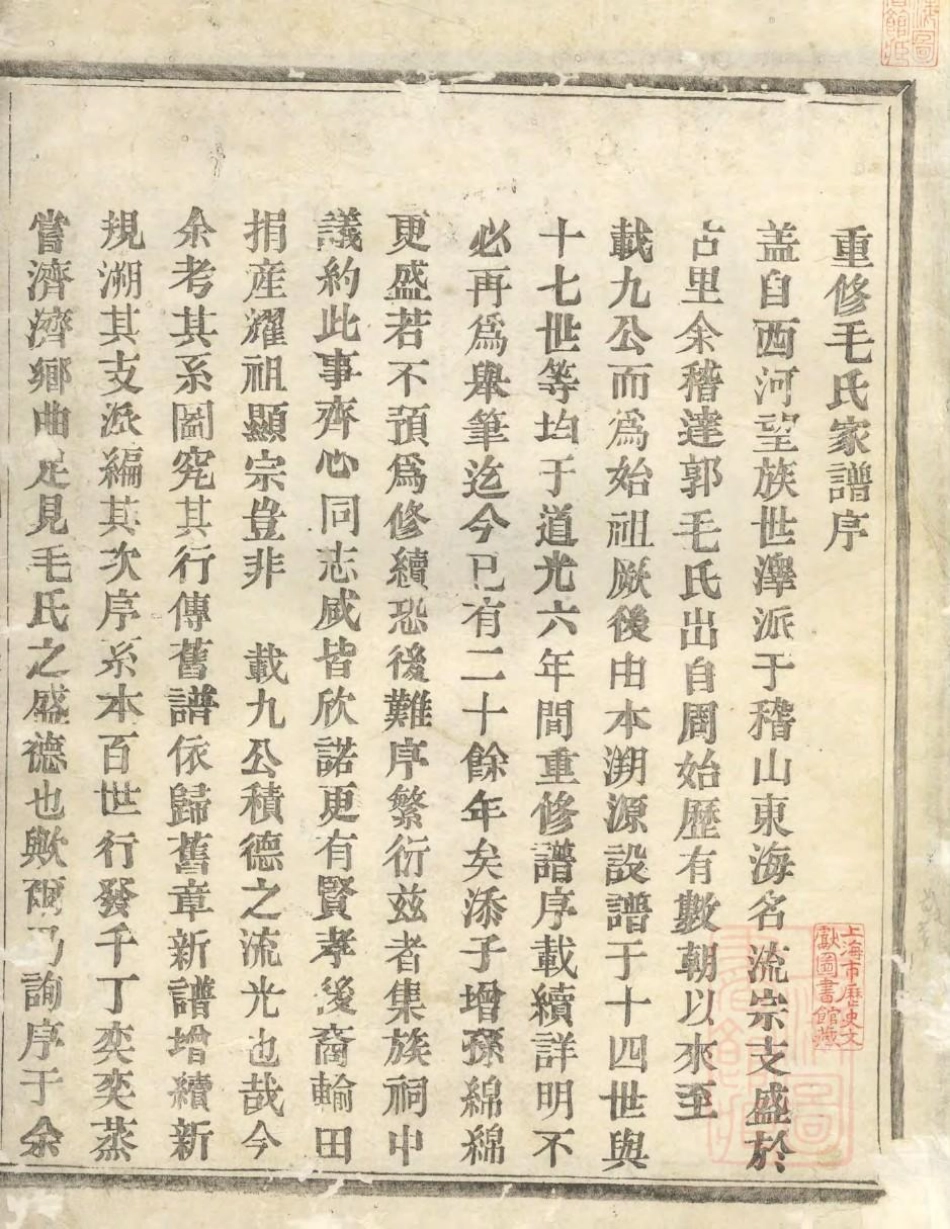 重修毛氏家譜序
盖自西河望族世澤派于稽山東海名流宗支盛於
占里余稽達郭毛氏出自周始歷有數朝以來至
載九公而爲始祖厥後由本溯源設譜于十四世與
十七世等均于道光六年間重修譜序載續詳明不
必再爲舉筆迄今已有二十餘年矣添子增孫綿綿
更盛若不預爲修續恐後難序繁衍兹者集族祠中
議約此事齊心同志咸皆欣諾更有賢孝後裔輸田
捐産耀祖顯宗豈非 載九公積德之流光也哉今
余考其系圖究其行傳舊譜依歸舊章新譜增續新
規溯其支派編其次序系本百世行發千丁奕奕蒸
嘗濟濟鄉曲足見毛氏之盛德也歟爾乃詢序于余
上海市歷史文
獻圖書館藏